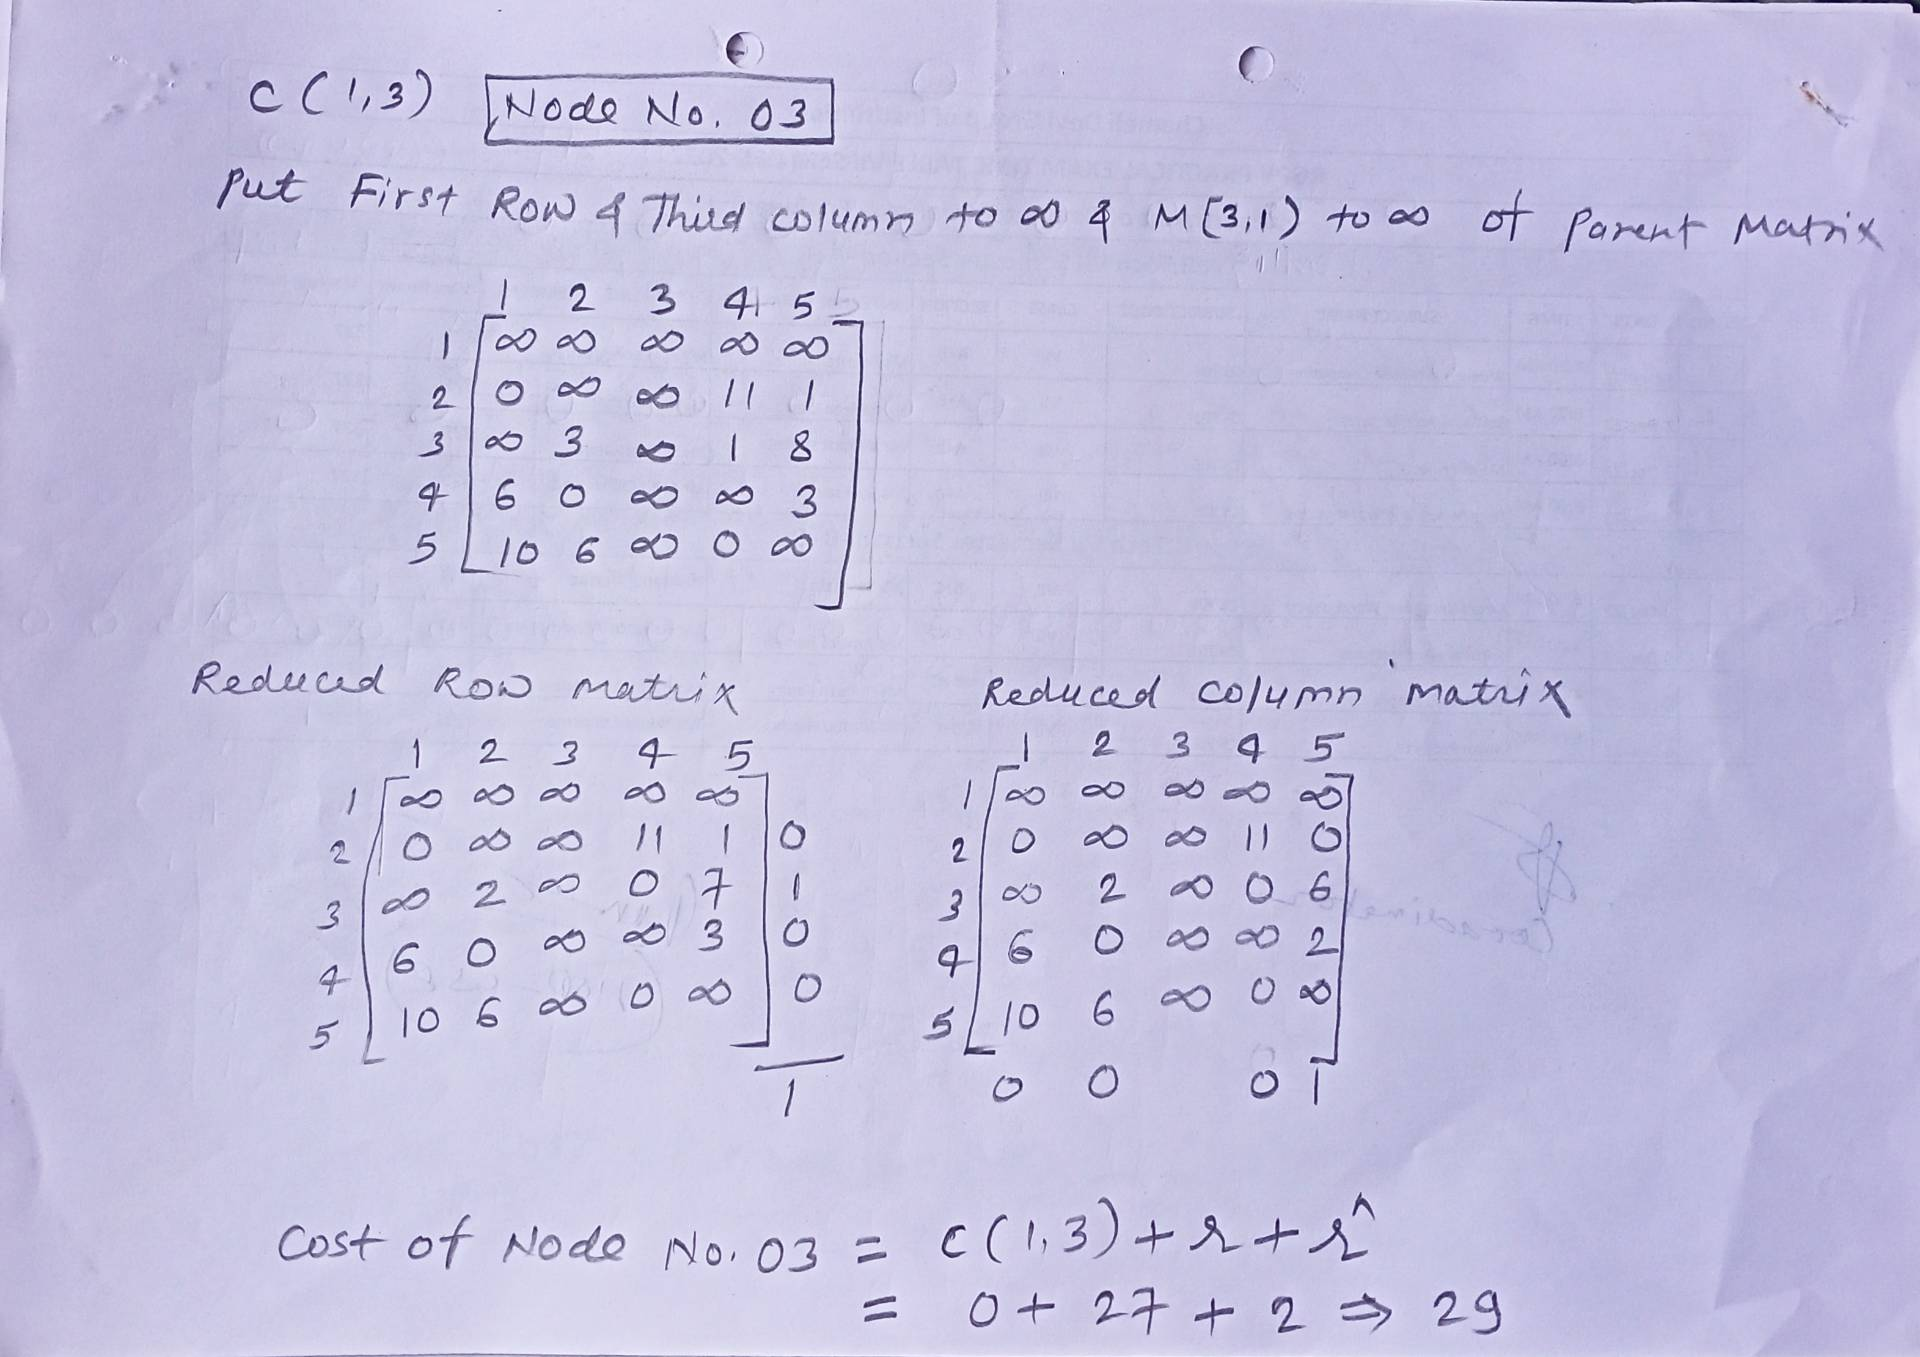 C(1,3) Node No. 03
Put First Row & Third column to ∞ & M[3,1) to ∞ of Parent Matrix
1 2 3 4 5
1 ∞ ∞ ∞ ∞ ∞
2 0 ∞ ∞ 11 1
3 ∞ 3 ∞ 1 8
4 6 0 ∞ ∞ 3
5 10 6 ∞ 0 ∞
Reduced Row matrix
1 2 3 4 5
1 ∞ ∞ ∞ ∞ ∞
2 0 ∞ ∞ 11 1 0
3 ∞ 2 ∞ 0 7 1
4 6 0 ∞ ∞ 3 0
5 10 6 ∞ 0 ∞ 0
1
Reduced column matrix
1 2 3 4 5
1 ∞ ∞ ∞ ∞ ∞
2 0 ∞ ∞ 11 0
3 ∞ 2 ∞ 0 6
4 6 0 ∞ ∞ 2
5 10 6 ∞ 0 ∞
0 0 0 1
Cost of Node No. 03 = C(1,3) + r + r^
= 0 + 27 + 2 ⇒ 29